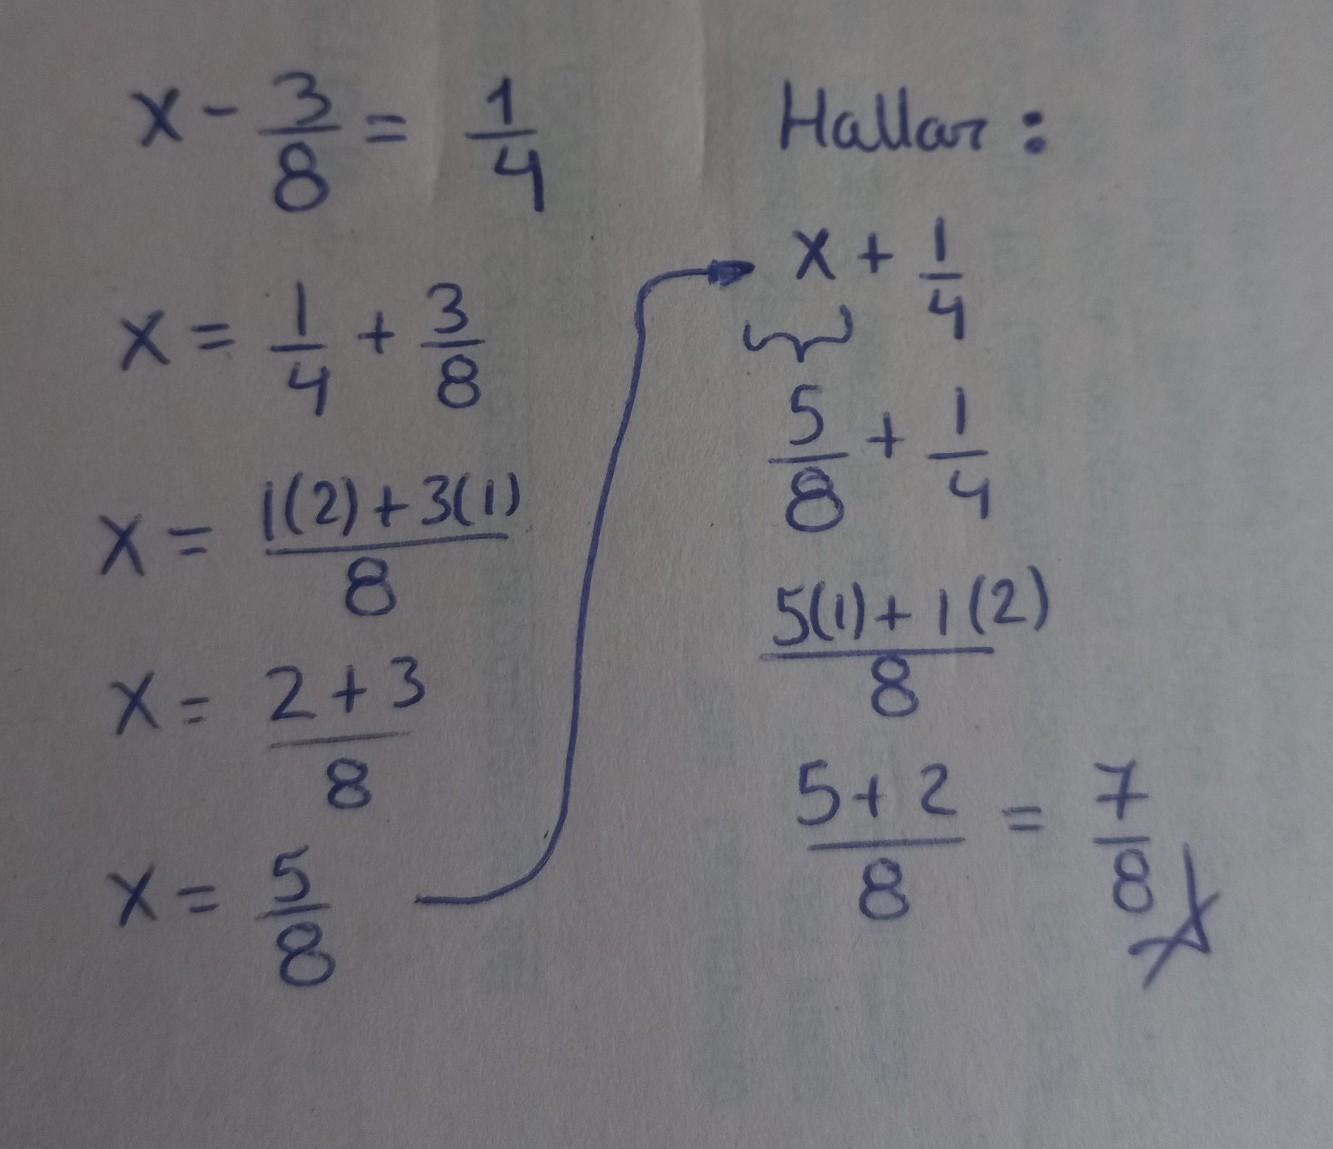 x - 3/8 = 1/4
x = 1/4 + 3/8
x = 1(2) + 3(1)/8
x = 2 + 3/8
x = 5/8
Hallar :
x + 1/4
5/8 + 1/4
5(1) + 1(2)/8
5 + 2/8 = 7/8